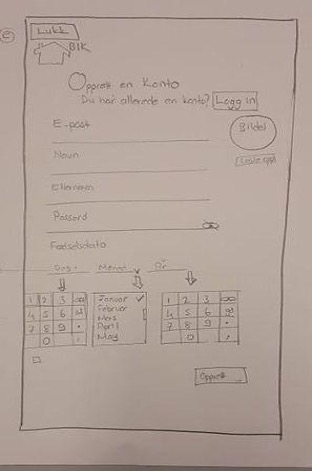 e
Lukk
BIK
Opprett en konto
Du har allerede en konto? Logg inn
E-post
Bilde
Navn
Etternavn
Passord
Fødselsdato
Dag Måned År
1 2 3
4 5 6
7 8 9 .
0 ,
Januar ✓
Februar
Mars
April
May
1 2 3
4 5 6
7 8 9 .
0 ,
Opprett